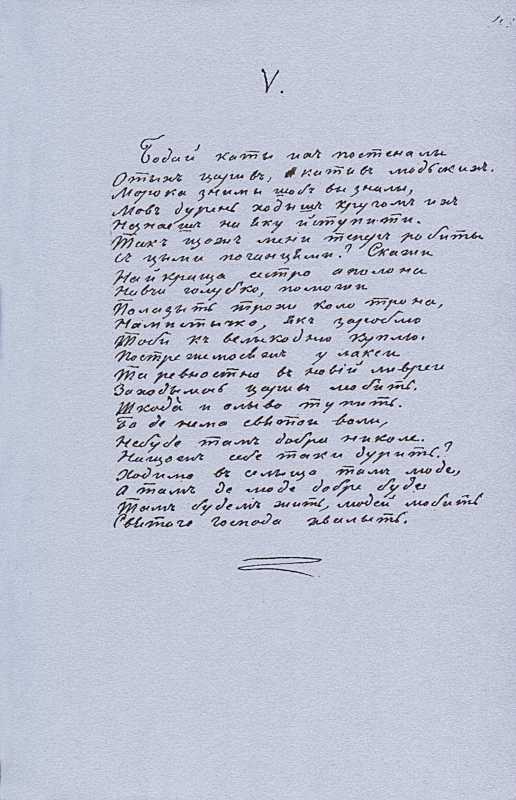 V.
Бодай каты ихъ постеналы
Отыхъ царивъ, кативъ людьскихъ.
Морока знимы щобъ вы зналы,
Мовъ дурень ходышъ кругомъ ихъ
Незнаешъ на яку йступити.
Такъ щожъ мени теперъ робиты
Съ цымы поганцями? Скажи
Найкраща сестро аполона
Навчи голубко, поможи
Полазыть трохи коло трона,
Намистычко, якъ зароблю
Тоби къ велыкодню куплю.
Пострежемося въ лакеи
Та ревностно въ новій ливреи
Заходымось царивъ любить.
Шкода и оливо тупить.
Бо де нема святои воли,
Небуде тамъ добра николе.
Нащожъ себе таки дурить?
Ходимо въ селыща тамъ люде,
А тамъ де люде добре буде
Тамъ будемъ жить, людей любить
Святого господа хвалыть.